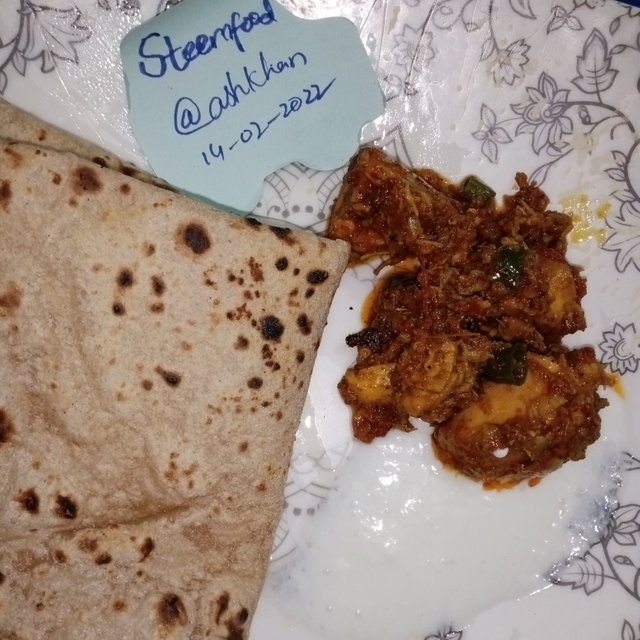 Steemfood
@ashkhan
14-02-2022